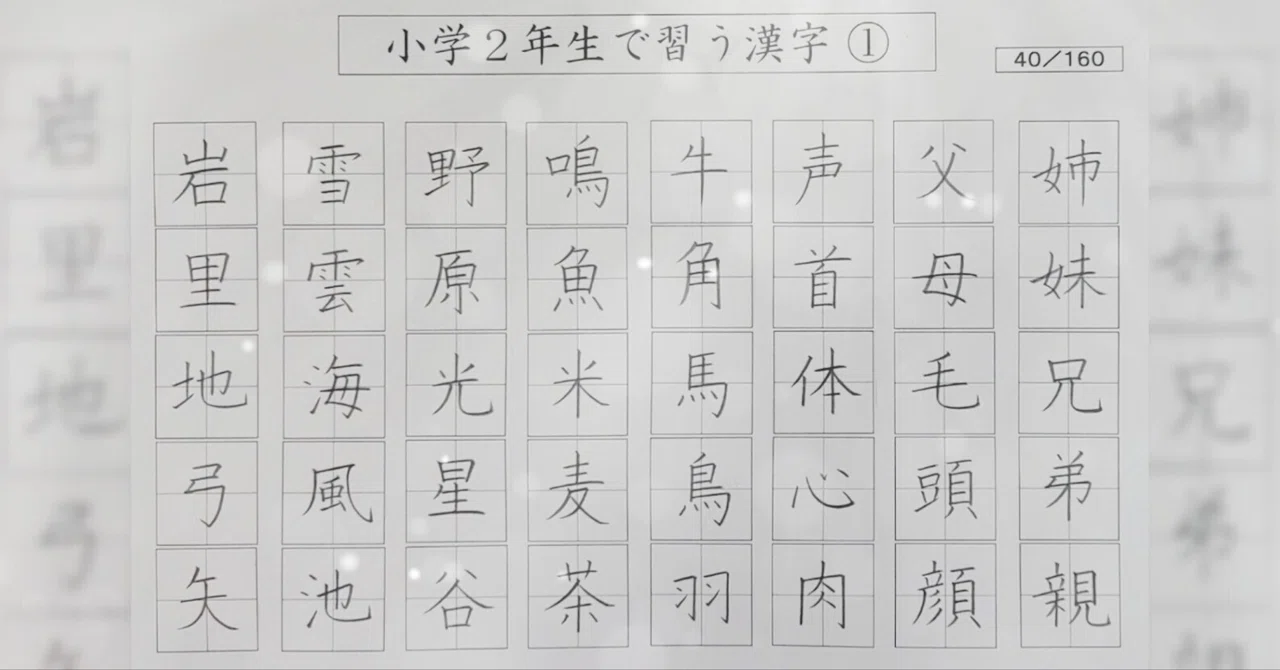 小学２年生で習う漢字 ①
40／160
姉妹兄弟親
父母毛頭顔
声首体心肉
牛角馬鳥羽
鳴魚米麦茶
野原光星谷
雪雲海風池
岩里地弓矢